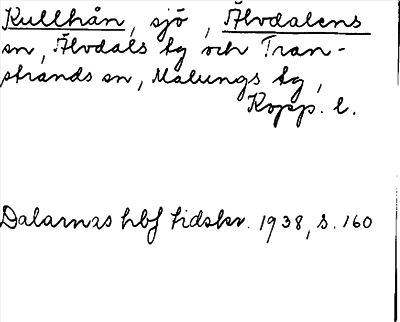 Kullhån, sjö, Älvdalens
sn, Älvdals tg och Tran-
strands sn, Malungs tg,
Kopp. l.
Dalarnas hbf tidskr. 1938, s. 160